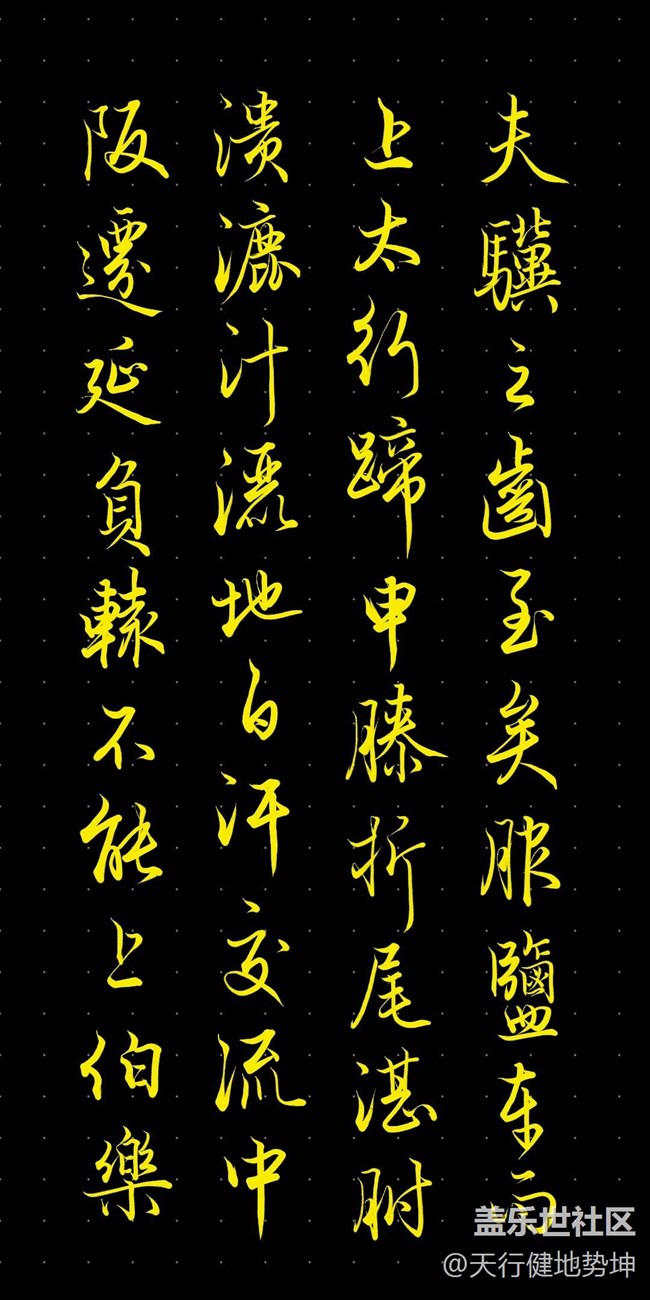 夫驥之齒至矣服鹽车而
上太行蹄申膝折尾湛胕
潰漉汁灑地白汗交流中
阪遷延負轅不能上伯樂
盖乐世社区
@天行健地势坤